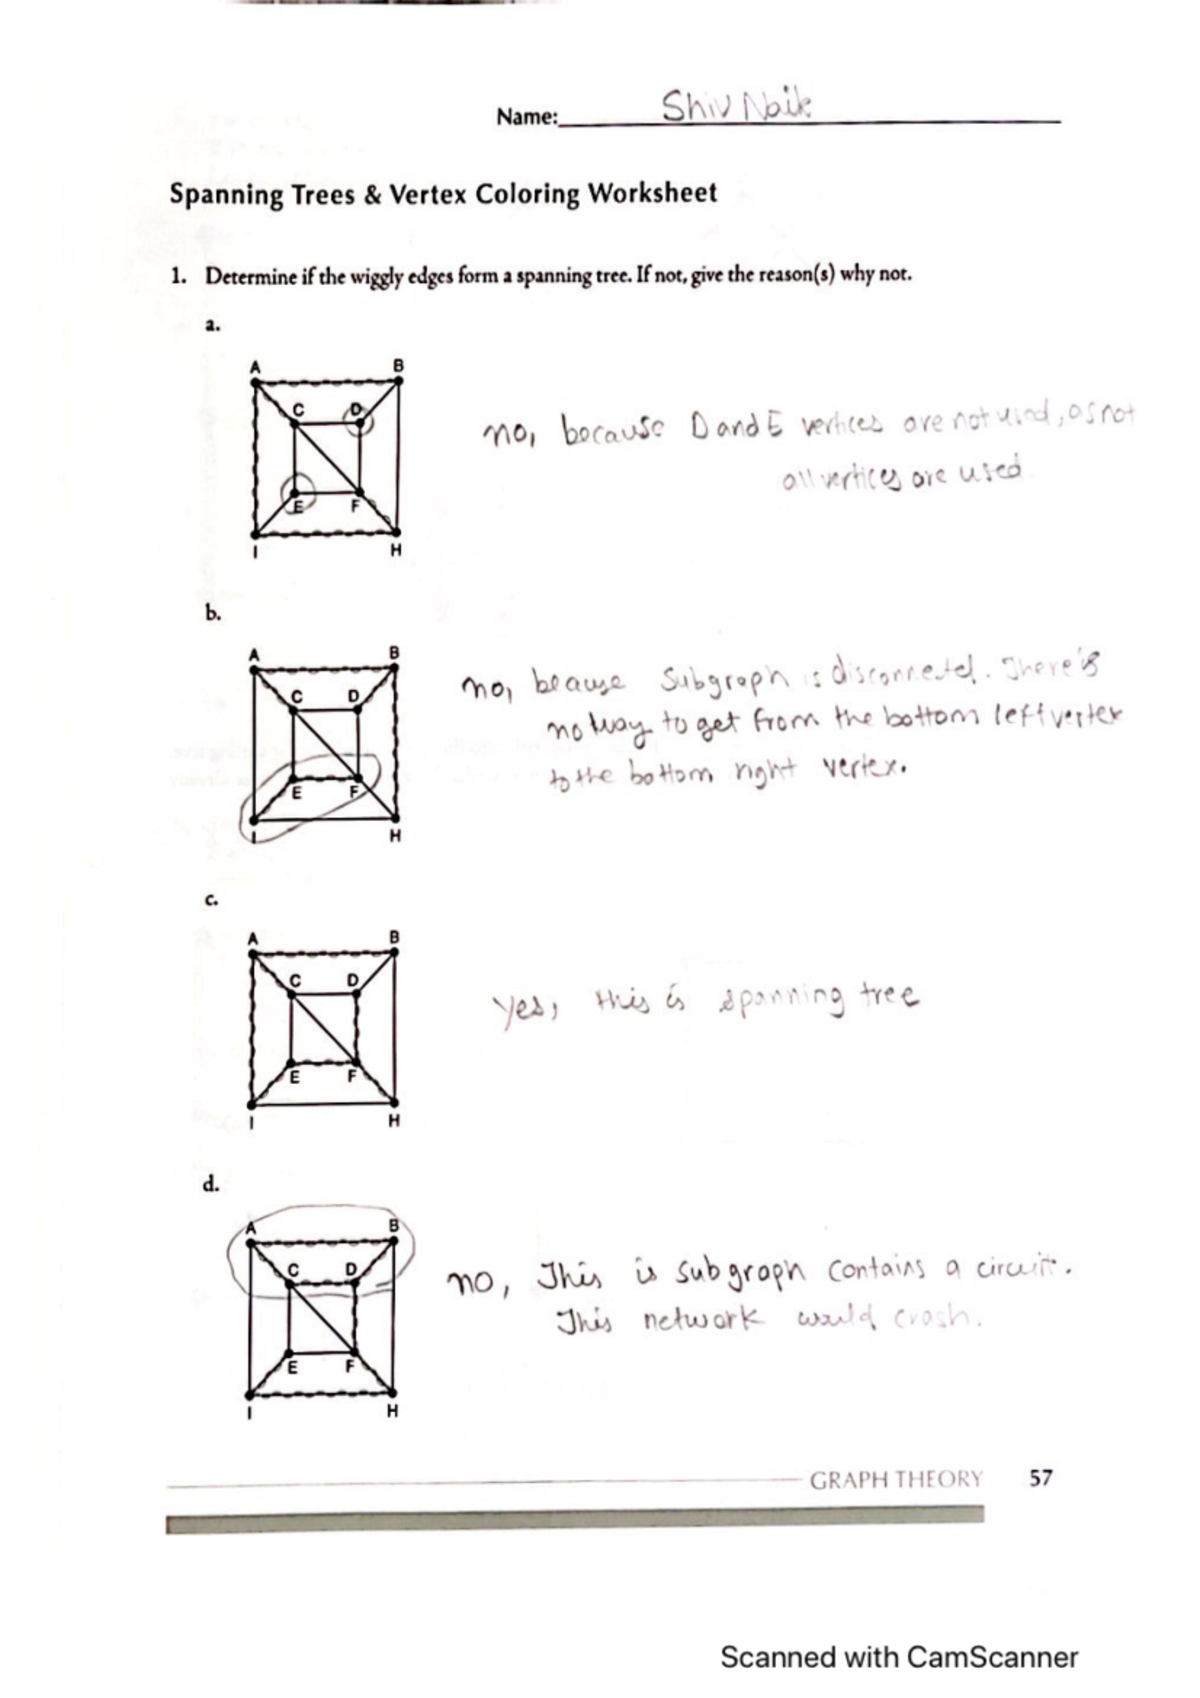 Name: Shiv Naik
Spanning Trees & Vertex Coloring Worksheet
1. Determine if the wiggly edges form a spanning tree. If not, give the reason(s) why not.
a.
A B
C D
E F
I H
no, because D and E vertices are not used, as not
all vertices are used.
b.
A B
C D
E F
I H
no, beause subgraph is disconnected. There's
no way to get from the bottom left vertex
to the bottom right vertex.
c.
A B
C D
E F
I H
yes, this is spanning tree
d.
A B
C D
E F
I H
no, This is subgraph contains a circuit.
This network would crash.
GRAPH THEORY 57
Scanned with CamScanner